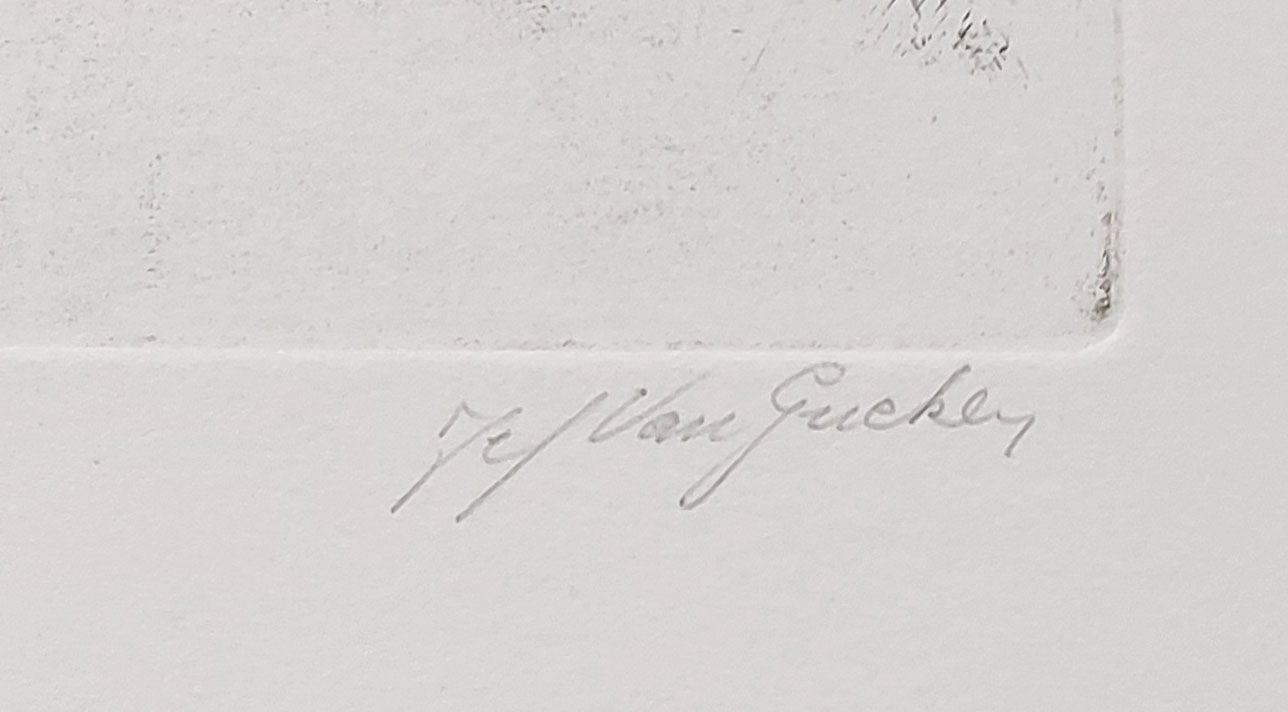 Jef Van Gucken